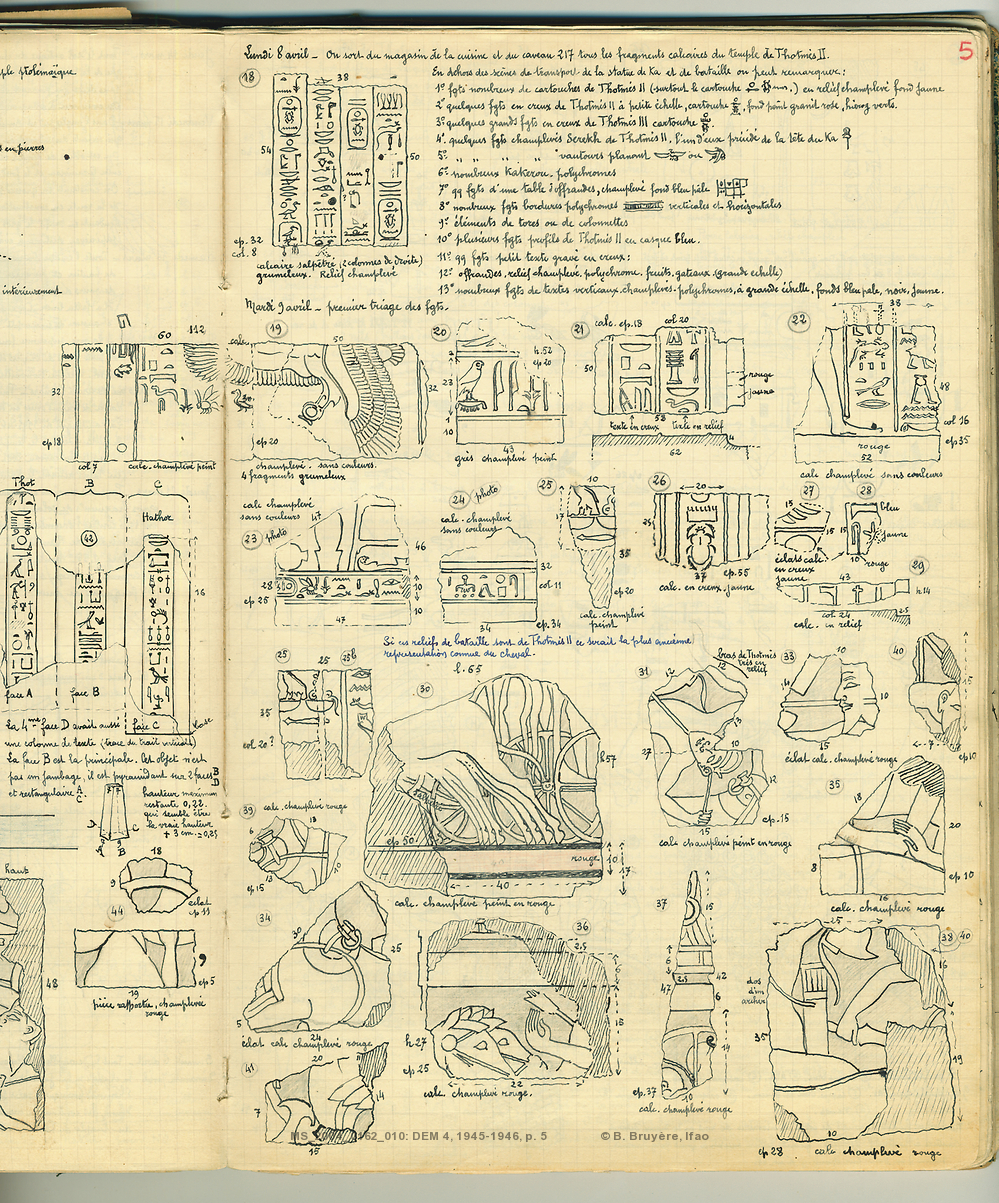 5
Lundi 8 avril _ On sort du magasin de la cuisine et du caveau 217 tous les fragments calcaires du temple de Thotmès II.
En dehors des scènes de transport de la statue de Ka et de bataille on peut remarquer:
1° fgts nombreux de cartouches de Thotmès II (surtout le cartouche
) en relief champlevé fond jaune
2° quelques fgts en creux de Thotmès II à petite échelle, cartouche
, fond peint granit rose, hiérog verts.
3° quelques grands fgts en creux de Thotmès III cartouche
4° quelques fgts champlevés Serekh de Thotmès II, l'un d'eux précédé de la tête du Ka
5° " " " " vautours planant
ou
6° nombreux Kakerou, polychromes
7° qq fgts d'une table d'offrandes, champlevé fond bleu pâle
8° nombreux fgts bordures polychromes
verticales et horizontales
9° éléments de tores ou de colonnettes
10° plusieurs fgts profils de Thotmès II en casque bleu.
11° qq fgts petit texte gravé en creux:
12° offrandes, relief champlevé, polychrome, fruits, gateaux (grande echelle)
13° nombreux fgts de textes verticaux champlevés-polychromes, à grande échelle, fonds bleu pale, noir, jaune.
18
38
54
50
ep. 32
col. 8
calcaire salpêtré (2 colonnes de droite)
grumeleux. Relief champlevé
Mardi 9 avril _ premier triage des fgts.
ple ptolémaïque
en pierres
intérieurement
60
112
32
ep 18
col 7
calc. champlevé peint
19
calc.
50
32
ep 20
champlevé - sans couleurs.
4 fragments grumeleux
20
h.52
ep 20
23
10
43
grès champlevé peint
21
calc. ep. 18
col 20
50
rouge
jaune
58
texte en creux
texte en relief
62
22
38
48
col 16
ep 35
rouge
52
calc champlevé sans couleurs
Thot
B
C
42
Hathor
16
face A
face B
face C
base
La 4me face D avait aussi
une colonne de texte (trace du trait vertical)
La face B est la principale. Cet objet n'est
pas un jambage, il est pyramidant sur 2 faces B D
et rectangulaire A C
hauteur maximum
restante 0,22.
qui semble être
la vraie hauteur
+ 3 cm. = 0,25
D
C
A
B
haut
48
18
9
44
éclat
ep 11
ep 5
19
pièce rapportée, champlevée
rouge
calc champlevé
sans couleurs
23 photo
46
28
ep 25
10
10
47
24 photo
calc. champlevé
sans couleurs
32
col. 11
34
ep. 34
25
10
35
ep 20
calc. champlevé
peint
26
20
25
37
ep. 55
calc. en creux, jaune
27
15
15
éclats calc.
en creux
jaune
28
bleu
jaune
15
10
rouge
29
43
h 14
col. 24
2.5
calc. en relief
Si ces reliefs de bataille sont de Thotmès II ce serait la plus ancienne
représentation connue du cheval.
25
25
25b
35
col. 20?
30
l. 65
h 57
ep 50
rouge
10
17
40
calc. champlevé peint en rouge
31
bras de Thotmès
très en
relief
12
13
27
10
12
15
ep. 15
calc champlevé peint en rouge
33
10
10
15
éclat calc. champlevé rouge
40
15
7
ep 10
35
18
20
8
ep 10
16
calc. champlevé rouge
39
calc. champlevé rouge
6
18
10
ep 15
13
34
30
25
5
24
éclat calc champlevé rouge
36
2.5
15
h 27
ep 25
22
calc. champlevé rouge.
37
15
6
2.5
42
47
6
14
ep. 37
10
calc. champlevé rouge
38
40
25
16
dos
d'un
archer
35
19
10
ep 28
calc champlevé rouge
41
20
7
14
15
MS_2004_0162_010: DEM 4, 1945-1946, p. 5
© B. Bruyère, Ifao